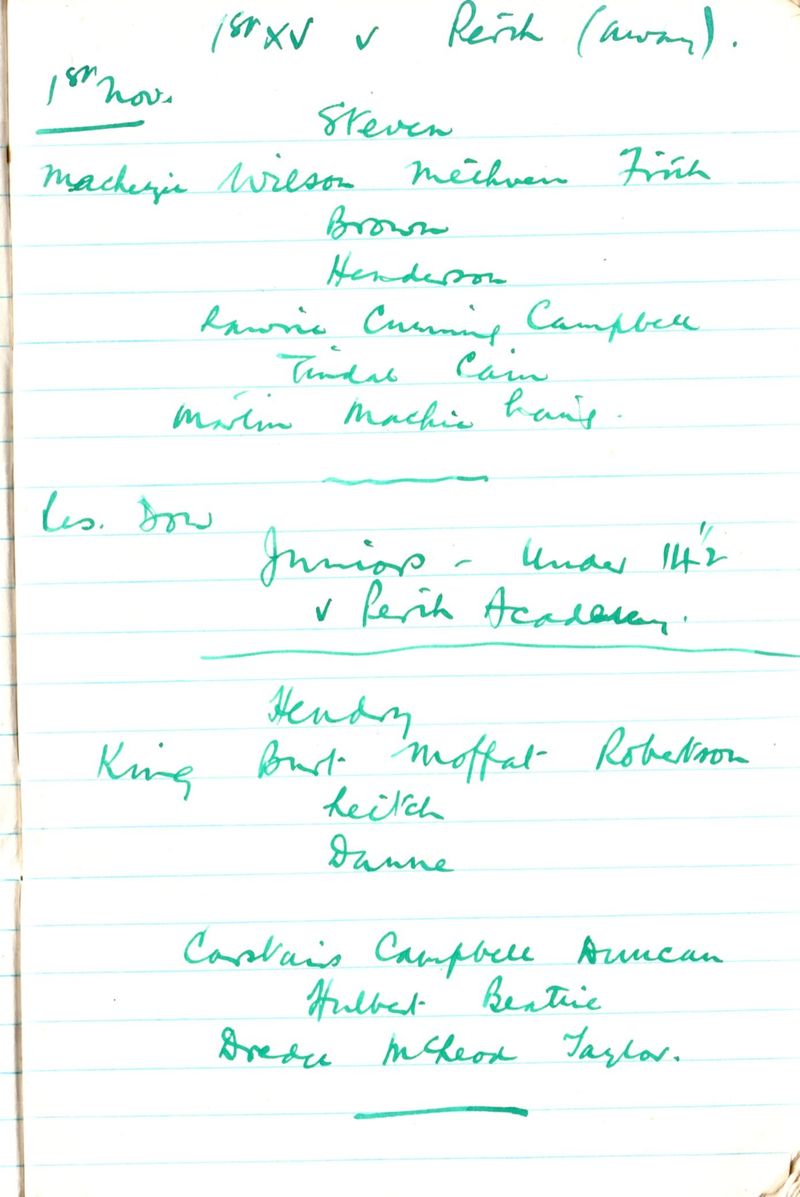 1st XV v Perth (away).
1st Nov.
Steven
Mackenzie Wilson Methven Firth
Brown
Henderson
Lawrie Cumming Campbell
Tindal Cain
Martin Mackie Laing.
Res. Dow
Juniors - Under 14½
v Perth Academy.
Hendry
King Burt Moffat Robertson
Leitch
Dunne
Carstairs Campbell Duncan
Hulbert Beattie
McLeod Taylor.